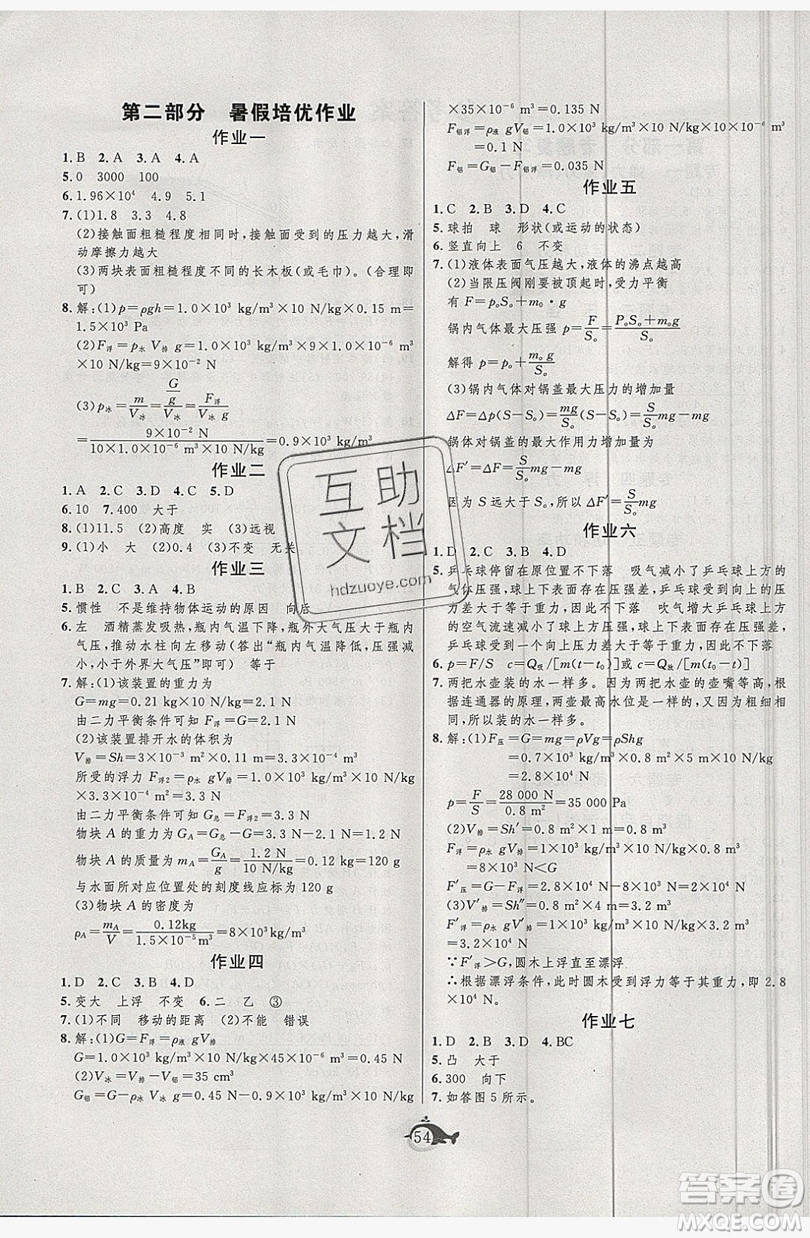 第二部分 暑假培优作业
作业一
1.B 2.A 3.A 4.A
5.0 3000 100
6.1.96×10⁴ 4.9 5.1
7.(1)1.8 3.3 4.8
(2)接触面粗糙程度相同时,接触面受到的压力越大,滑
动摩擦力越大
(3)两块表面粗糙程度不同的长木板(或毛巾)。(合理即
可)
8.解:(1)p=ρgh=1.0×10³ kg/m³×10 N/kg×0.15 m=
1.5×10³ Pa
(2)F浮=ρ水 V排 g=1.0×10³ kg/m³×9×1.0×10⁻⁶ m³
×10 N/kg=9×10⁻² N
(3)ρ冰=m/V冰=(G/g)/V冰=G/(V冰 g)
=9×10⁻² N/(10×1.0×10⁻⁶ m³×10 N/kg)=0.9×10³ kg/m³
作业二
1.A 2.C 3.C 4.C 5.D
6.10 7.400 大于
8.(1)11.5 (2)高度 实 (3)远视
9.(1)小 大 (2)0.4 (3)不变 无关
作业三
1.B 2.C 3.A 4.B
5.惯性 不是维持物体运动的原因 向后
6.左 酒精蒸发吸热,瓶内气温下降,外界大气压大于瓶内
气压,推动水柱向左移动(答出“瓶内气温降低,压强减
小,小于外界大气压”即可) 等于
7.解:(1)该装置的重力为
G=mg=0.21 kg×10 N/kg=2.1 N
由二力平衡条件可知 F浮=G=2.1 N
(2)该装置排开水的体积为
V排=Sh=3×10⁻³ m²×0.11 m=3.3×10⁻⁴ m³
所受的浮力 F浮2=ρ水 gV排=1.0×10³ kg/m³×10 N/kg
×3.3×10⁻⁴ m³=3.3 N
由二力平衡条件可知 G总=F浮2=3.3 N
物块 A 的重力为 GA=G总-G=3.3 N-2.1 N=1.2 N
物块 A 的质量为 mA=GA/g=1.2 N/10 N/kg=0.12 kg=120 g
与水面所对应位置处的刻度线应标为 120 g
(3)物块 A 的密度为
ρA=m/V=0.12kg/1.5×10⁻⁵ m³=8×10³ kg/m³
作业四
1.D 2.C 3.C 4.D
5.变大 上浮 不变 6.二 乙 ③
7.(1)不同 移动的距离 (2)不能 错误
8.解:(1)G=F浮=ρ水 gV排
G=1.0×10³ kg/m³×10 N/kg×45×10⁻⁶ m³=0.45 N
(2)V冰=V排=35 cm³
G铝=G-G冰=0.45 N-0.9×10³ kg/m³×10 N/kg
×35×10⁻⁶ m³=0.135 N
F铝浮=ρ水 gV铝=1.0×10³ kg/m³×10 N/kg×10×10⁻⁶
m³=0.1 N
F铝=G铝-F铝浮=0.035 N
作业五
1.C 2.B 3.D 4.C
5.球拍 球 形状(或运动的状态)
6.竖直向上 6 不变
7.(1)液体表面气压越大,液体的沸点越高
(2)当限压阀刚要被顶起时,受力平衡
有 F=P₀S₀+m₀g
锅内气体最大压强 p=F/S₀=(P₀S₀+m₀g)/S₀
解得 p=p₀+m₀g/S₀
(3)锅内气体对锅盖最大压力的变化
ΔF=Δp(S-S₀)=mg/S₀(S-S₀)=S/S₀ mg-mg
锅体对锅盖的最大作用力增加量
ΔF′=ΔF+mg=S/S₀ mg-mg+mg=S/S₀ mg
因为 S 远大于 S₀,所以 ΔF′=S/S₀ m
作业六
1.D 2.C 3.A 4.D
5.乒乓球停留在原位置不下落 吸气减小了乒乓球上方的
气体压强,球上下表面存在压强差,乒乓球不下落
乒乓球停留在原位置不下落 吹气增大了乒乓球上方的
空气流速减小了球上方压强,球上下表面存在压强差,
可提供一个向上的压力来平衡重力,乒乓球不下落
6.p=F/S c=Q吸/[m(t-t₀)]或c=Q放/[m(t₀-t)]
7.两把水壶装的水一样多。因为两把水壶的壶嘴等高,根
据连通器的原理,两把壶最高水位是一样的,壶又规格
相同,所以装的水一样多。
8.解:(1)F压=G=mg=ρVg=ρShg
=0.7×10³ kg/m³×0.8 m²×5 m×10 N/kg
=2.8×10⁴ N
p=F/S=28 000 N/0.8 m²=35 000 Pa
(2)V排=Sh′=0.8 m²×1 m=0.8 m³
F浮=ρ水 gV排=1×10³ kg/m³×10 N/kg×0.8 m³
=8×10³ N<G
F′压=G-F浮=2.8×10⁴ N-8×10³ N=2×10⁴ N
(3)V′排=Sh″=0.8 m²×4 m=3.2 m³
F′浮=ρ水 gV′排=1×10³ kg/m³×10 N/kg×3.2 m³
=3.2×10⁴ N
∵F′浮>G,∴圆木上浮直至漂浮。
∴根据漂浮条件,此时圆木受到浮力等于重力,即 2.8
×10⁴ N。
作业七
1.D 2.B 3.D 4.BC
5.凸 大于
6.300 向下
7.如答图 5 所示。
54
互助
文档
hdzuoye.com
答案圈
MXQE.COM